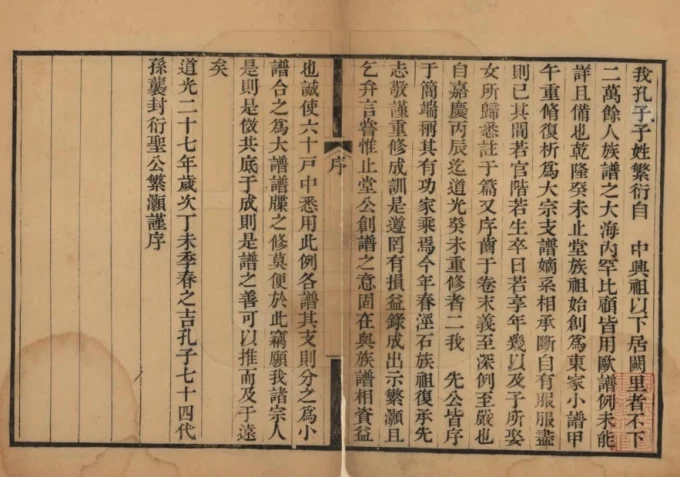 我孔子子姓繁衍自　中興祖以下居闕里者不下
二萬餘人族譜之大海內罕比顧皆用歐譜例未能
詳且備也乾隆癸未止堂族祖始創為東家小譜甲
午重脩復析為大宗支譜嫡系相承斷自有服服盡
則已其間若官階若生卒日若享年幾以及子所娶
女所歸悉註于篇又序齒于卷末義至深例至嚴也
自嘉慶丙辰迄道光癸未重修者二我　先公皆序
于簡端稱其有功家乘焉今年春涇石族祖復承先
志敬謹重修成訓是遵罔有損益錄成出示繁灝且
乞弁言耆惟止堂公創譜之意固在與族譜相資益
序
也誠使六十戶中悉用此例各譜其支則分之為小
譜合之為大譜譜牒之修莫便於此竊願我諸宗人
是則是傚共底于成則是譜之善可以推而及于遠
矣
道光二十七年歲次丁未季春之吉孔子七十四代
孫襲封衍聖公繁灝謹序